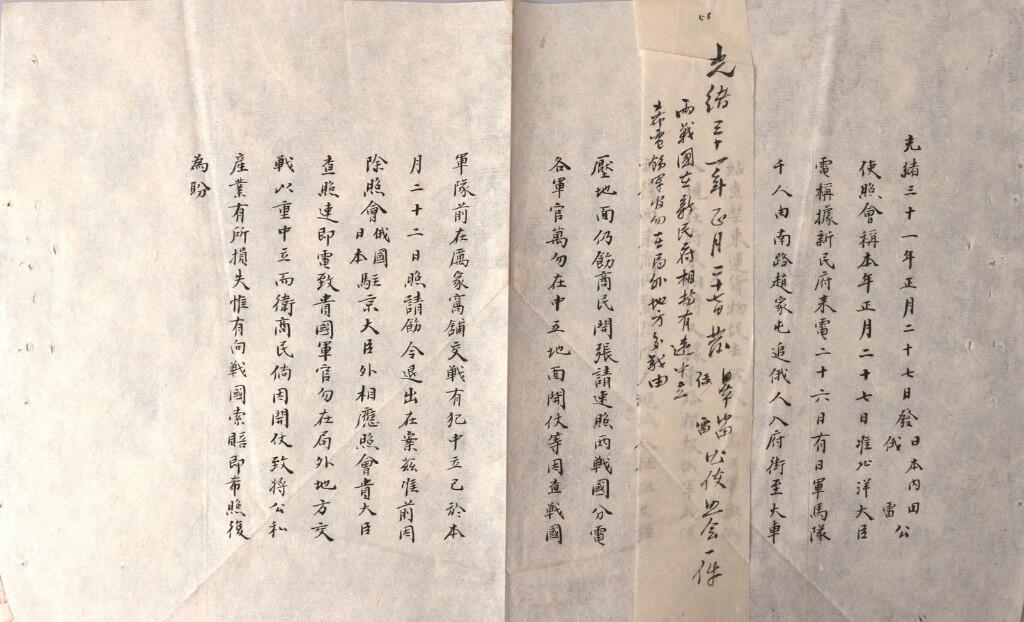 光緒三十一年正月二十七發日本內田公
俄 雷
使照會稱本年正月二十七日准北洋大臣
電稱據新民府来電二十六日有日軍馬隊
千人由南路趙家屯追俄人入府街至大車
58
光緒三十一年正月二十七日發 公使照會一件
俄 雷
兩戰國在新民府相持有違中立
希電飭軍官勿在局外地方交戰由
壓地面仍飭商民開張請速照兩戰國分電
各軍官萬勿在中立地面開仗等因查戰國
軍隊前在厲家窩舖交戰有犯中立已於本
月二十二日照請飭令退出在案茲准前因
除照會俄國日本駐京大臣外相應照會貴大臣
查照速即電致貴國軍官勿在局外地方交
戰以重中立而衛商民倘因開仗致將公私
產業有所損失惟有向戰國索賠即希照復
為盼